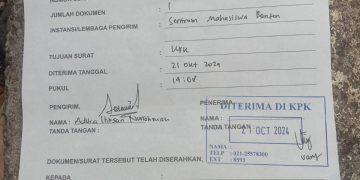 JUMLAH DOKUMEN : 1
INSTANSI/LEMBAGA PENGIRIM : Sentrum Mahasiswa Banten
TUJUAN SURAT : KPK
DITERIMA TANGGAL : 21 OKt 2024
PUKUL : 14:08
PENGIRIM, PENERIMA,
NAMA : Ihsan Nurrohman NAMA :
TANDA TANGAN : TANDA TANGAN :
DITERIMA DI KPK
21 OCT 2024
TELP : 021-25578300
EXT : 8593
DOKUMEN/SURAT TERSEBUT TELAH DISERAHKAN,
KEPADA :